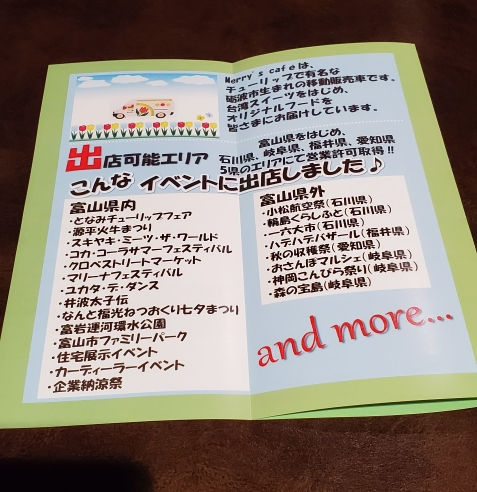 Merry's cafeは、
チューリップで有名な
砺波市生まれの移動販売車です。
台湾スイーツをはじめ、
オリジナルフードを
皆さまにお届けしています。
出店可能エリア
富山県をはじめ、
石川県、岐阜県、福井県、愛知県
5県のエリアにて営業許可取得!!
こんなイベントに出店しました♪
富山県内
・となみチューリップフェア
・源平火牛まつり
・スキヤキ・ミーツ・ザ・ワールド
・コカ・コーラサマーフェスティバル
・クロベストリートマーケット
・マリーナフェスティバル
・ユカタ・デ・ダンス
・井波太子伝
・なんと福光ねつおくり七夕まつり
・富岩運河環水公園
・富山市ファミリーパーク
・住宅展示イベント
・カーディーライベント
・企業納涼祭
富山県外
・小松航空祭(石川県)
・輪島くらしふと(石川県)
・一六大市(石川県)
・ハデハデバザール(福井県)
・秋の収穫祭(愛知県)
・おさんぽマルシェ(岐阜県)
・神岡こんぴら祭り(岐阜県)
・森の宝島(岐阜県)
and more...